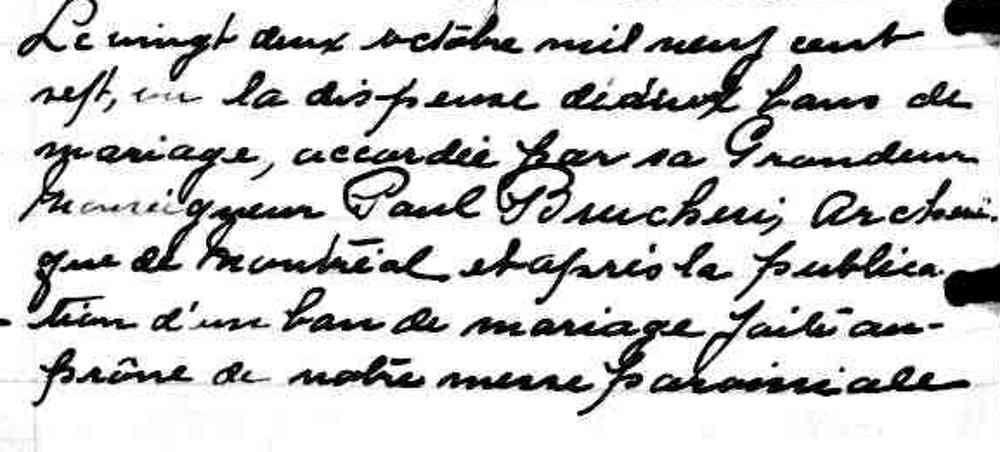 Le vingt deux octobre mil neuf cent
sept, vu la dispense de deux bans de
mariage, accordée par sa Grandeur
Monseigneur Paul Bruchesi, Archevê-
que de Montréal et après la publica-
tion d'un ban de mariage faite au
prône de notre messe paroissiale